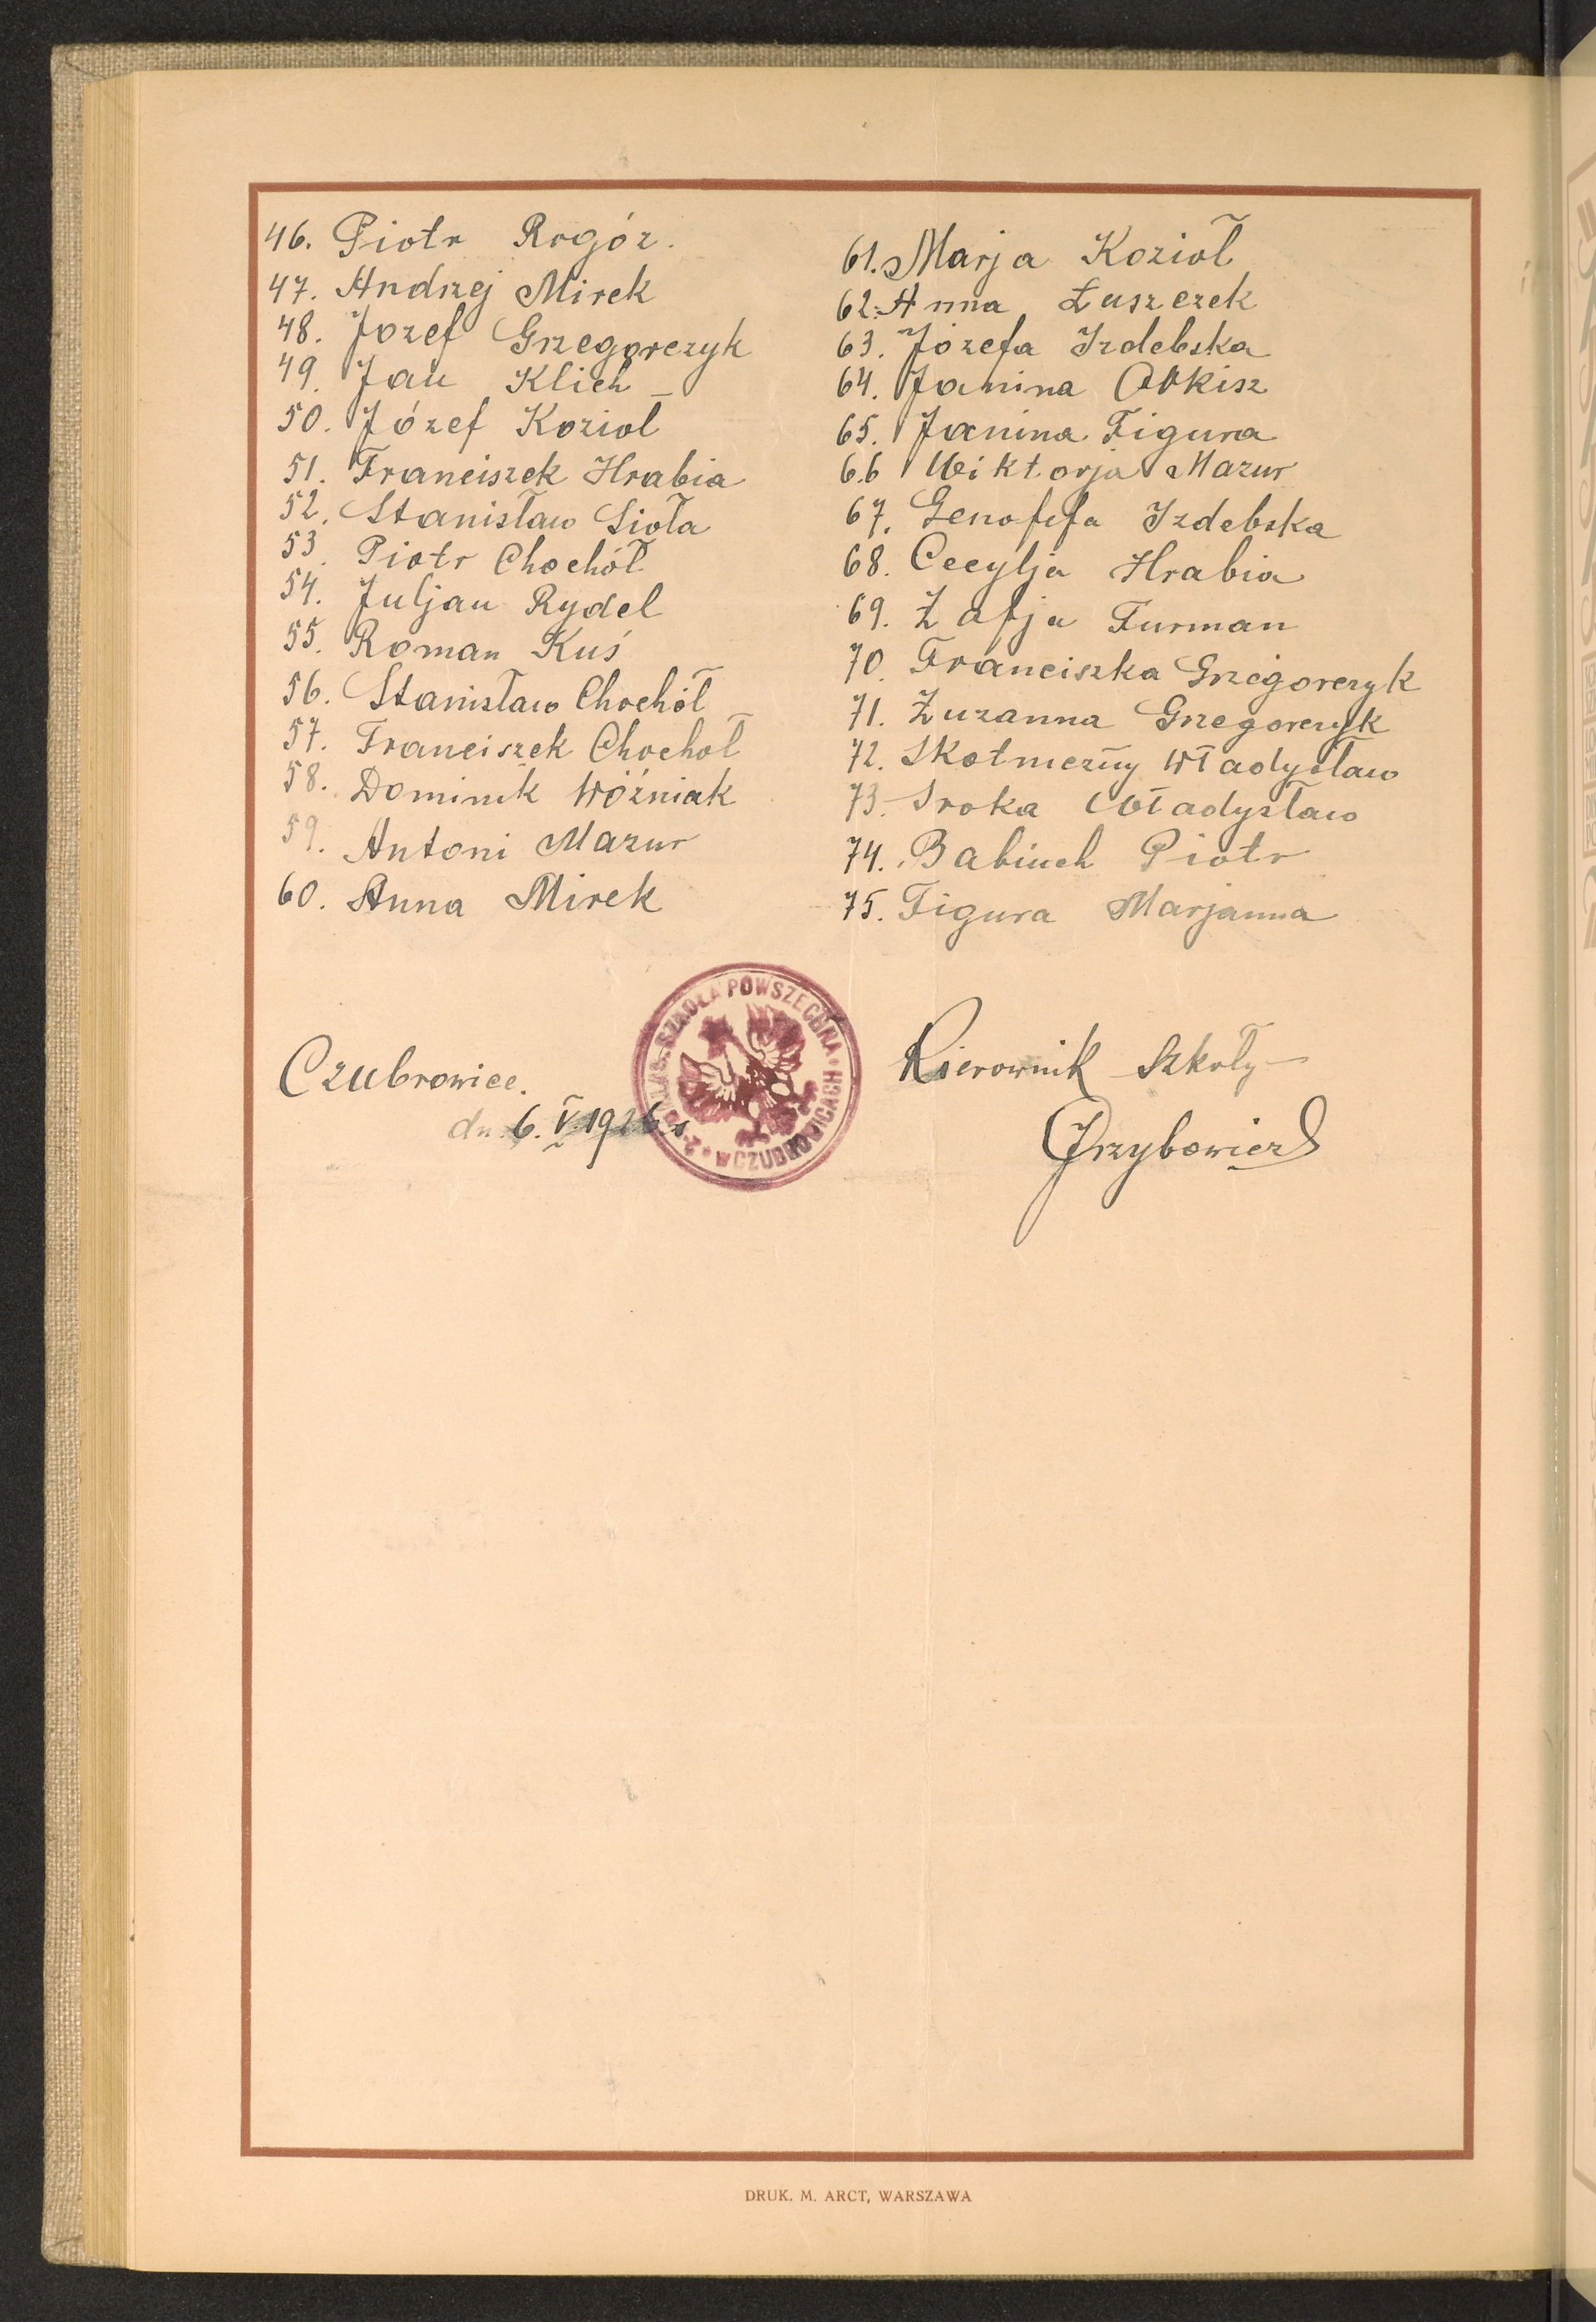 46. Piotr Rogóz.
47. Andrzej Mirek
48. Jozef Grzegorczyk
49. Jan Klich
50. Józef Kozioł
51. Franciszek Hrabia
52. Stanisław Sioła
53. Piotr Chochół
54. Juljan Rydel
55. Roman Kuś
56. Stanisław Chochół
57. Franciszek Chochoł
58. Dominik Wóźniak
59. Antoni Mazur
60. Anna Mirek
61. Marja Kozioł
62. Anna Łuszczek
63. Józefa Izdebska
64. Janina
65. Janina Figura
66 Wiktorja Mazur
67. Genofefa Izdebska
68. Cecylja Hrabia
69. Zofja Furman
70. Franciszka Grzegorczyk
71. Zuzanna Grzegorczyk
72. Skotniczny Władysław
73. Sroka Władysław
74. Babiuch Piotr
75. Figura Marjanna
Czubrowice.
dn. 6. V. 1926 r
SZKOŁA POWSZECHNA W CZUBROWICACH
Kierownik Szkoły
DRUK. M. ARCT, WARSZAWA